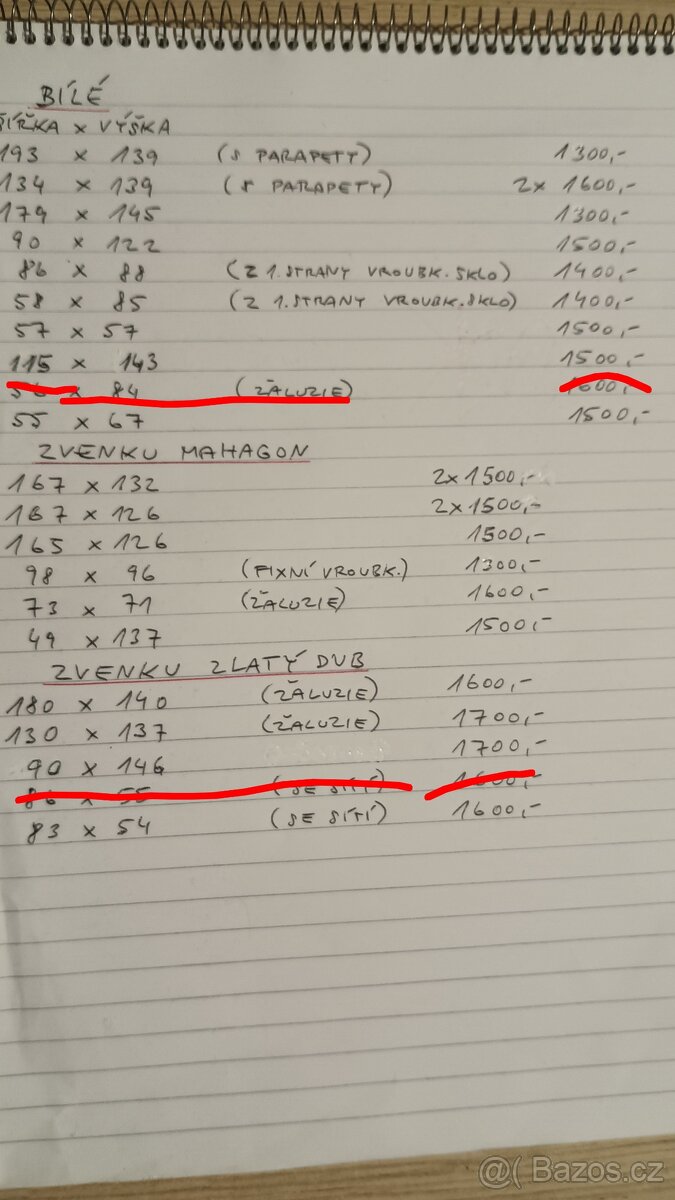 BÍLÉ
ŠÍŘKA x VÝŠKA
193 x 139 (S PARAPETY) 1300,-
134 x 139 (S PARAPETY) 2x 1600,-
179 x 145 1300,-
90 x 122 1500,-
86 x 88 (Z 1. STRANY VROUBK. SKLO) 1400,-
58 x 85 (Z 1. STRANY VROUBK. SKLO) 1400,-
57 x 57 1500,-
115 x 143 1500,-
56 x 84 (ŽALUZIE) 1600,-
55 x 67 1500,-
ZVENKU MAHAGON
167 x 132 2x1500,-
167 x 126 2x1500,-
165 x 126 1500,-
98 x 96 (FIXNÍ VROUBK.) 1300,-
73 x 71 (ŽALUZIE) 1600,-
49 x 137 1500,-
ZVENKU ZLATÝ DUB
180 x 140 (ŽALUZIE) 1600,-
130 x 137 (ŽALUZIE) 1700,-
90 x 146 1700,-
86 x 55 (SE SÍTÍ) 1600,-
83 x 54 (SE SÍTÍ) 1600,-
@( Bazos.cz